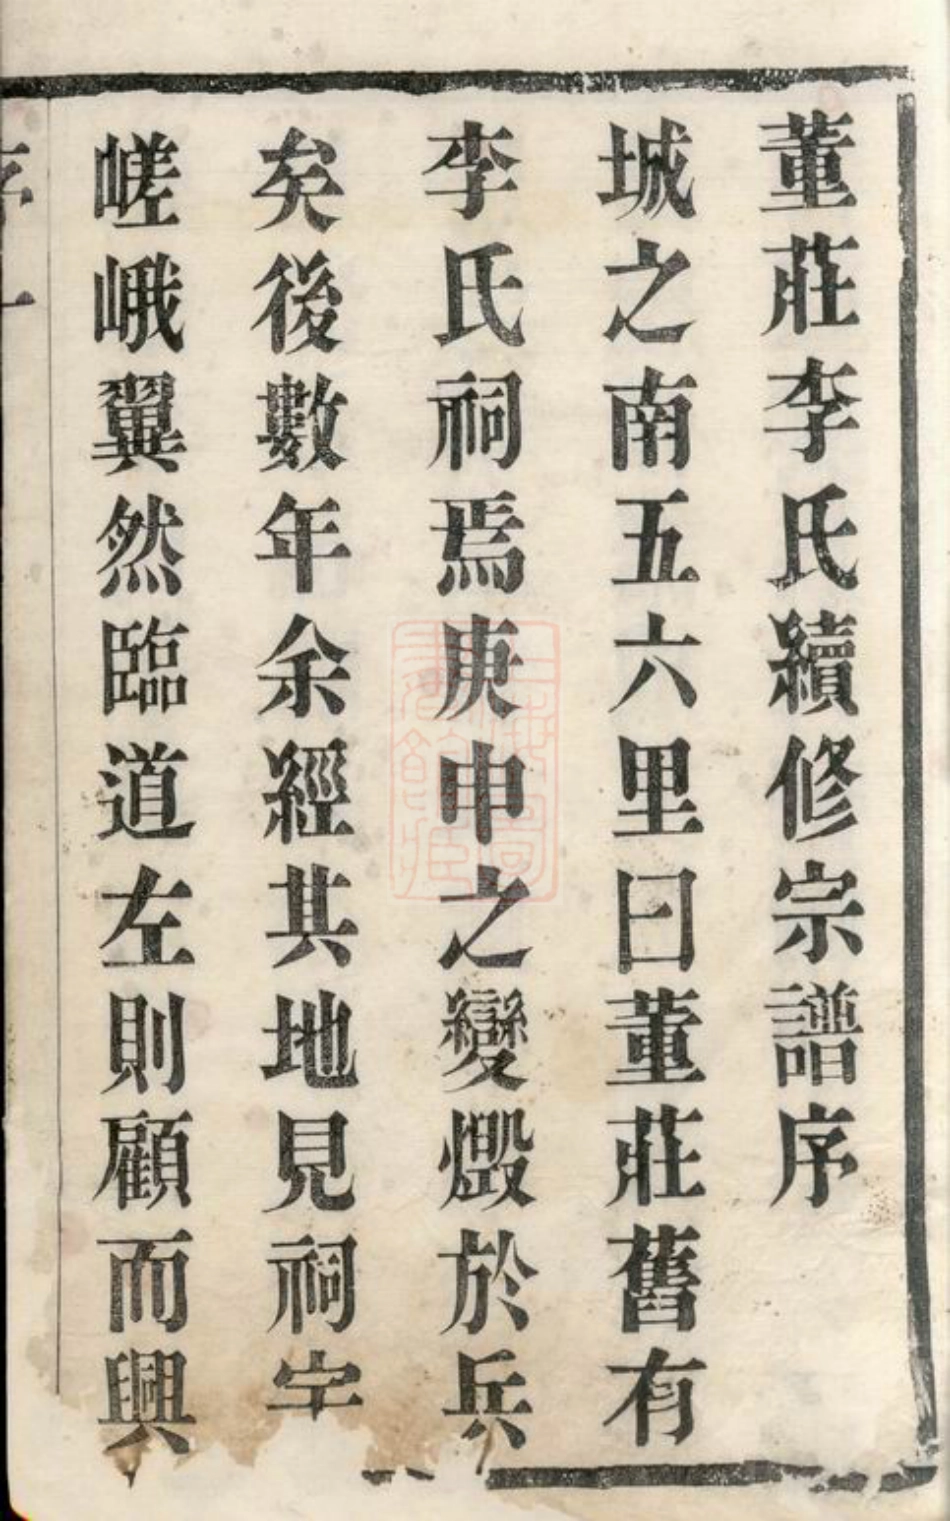 董莊李氏續修宗譜序
城之南五六里曰董莊舊有
李氏祠焉庚申之變燬於兵
矣後數年余經其地見祠宇
嵯峨翼然臨道左則顧而興
序一